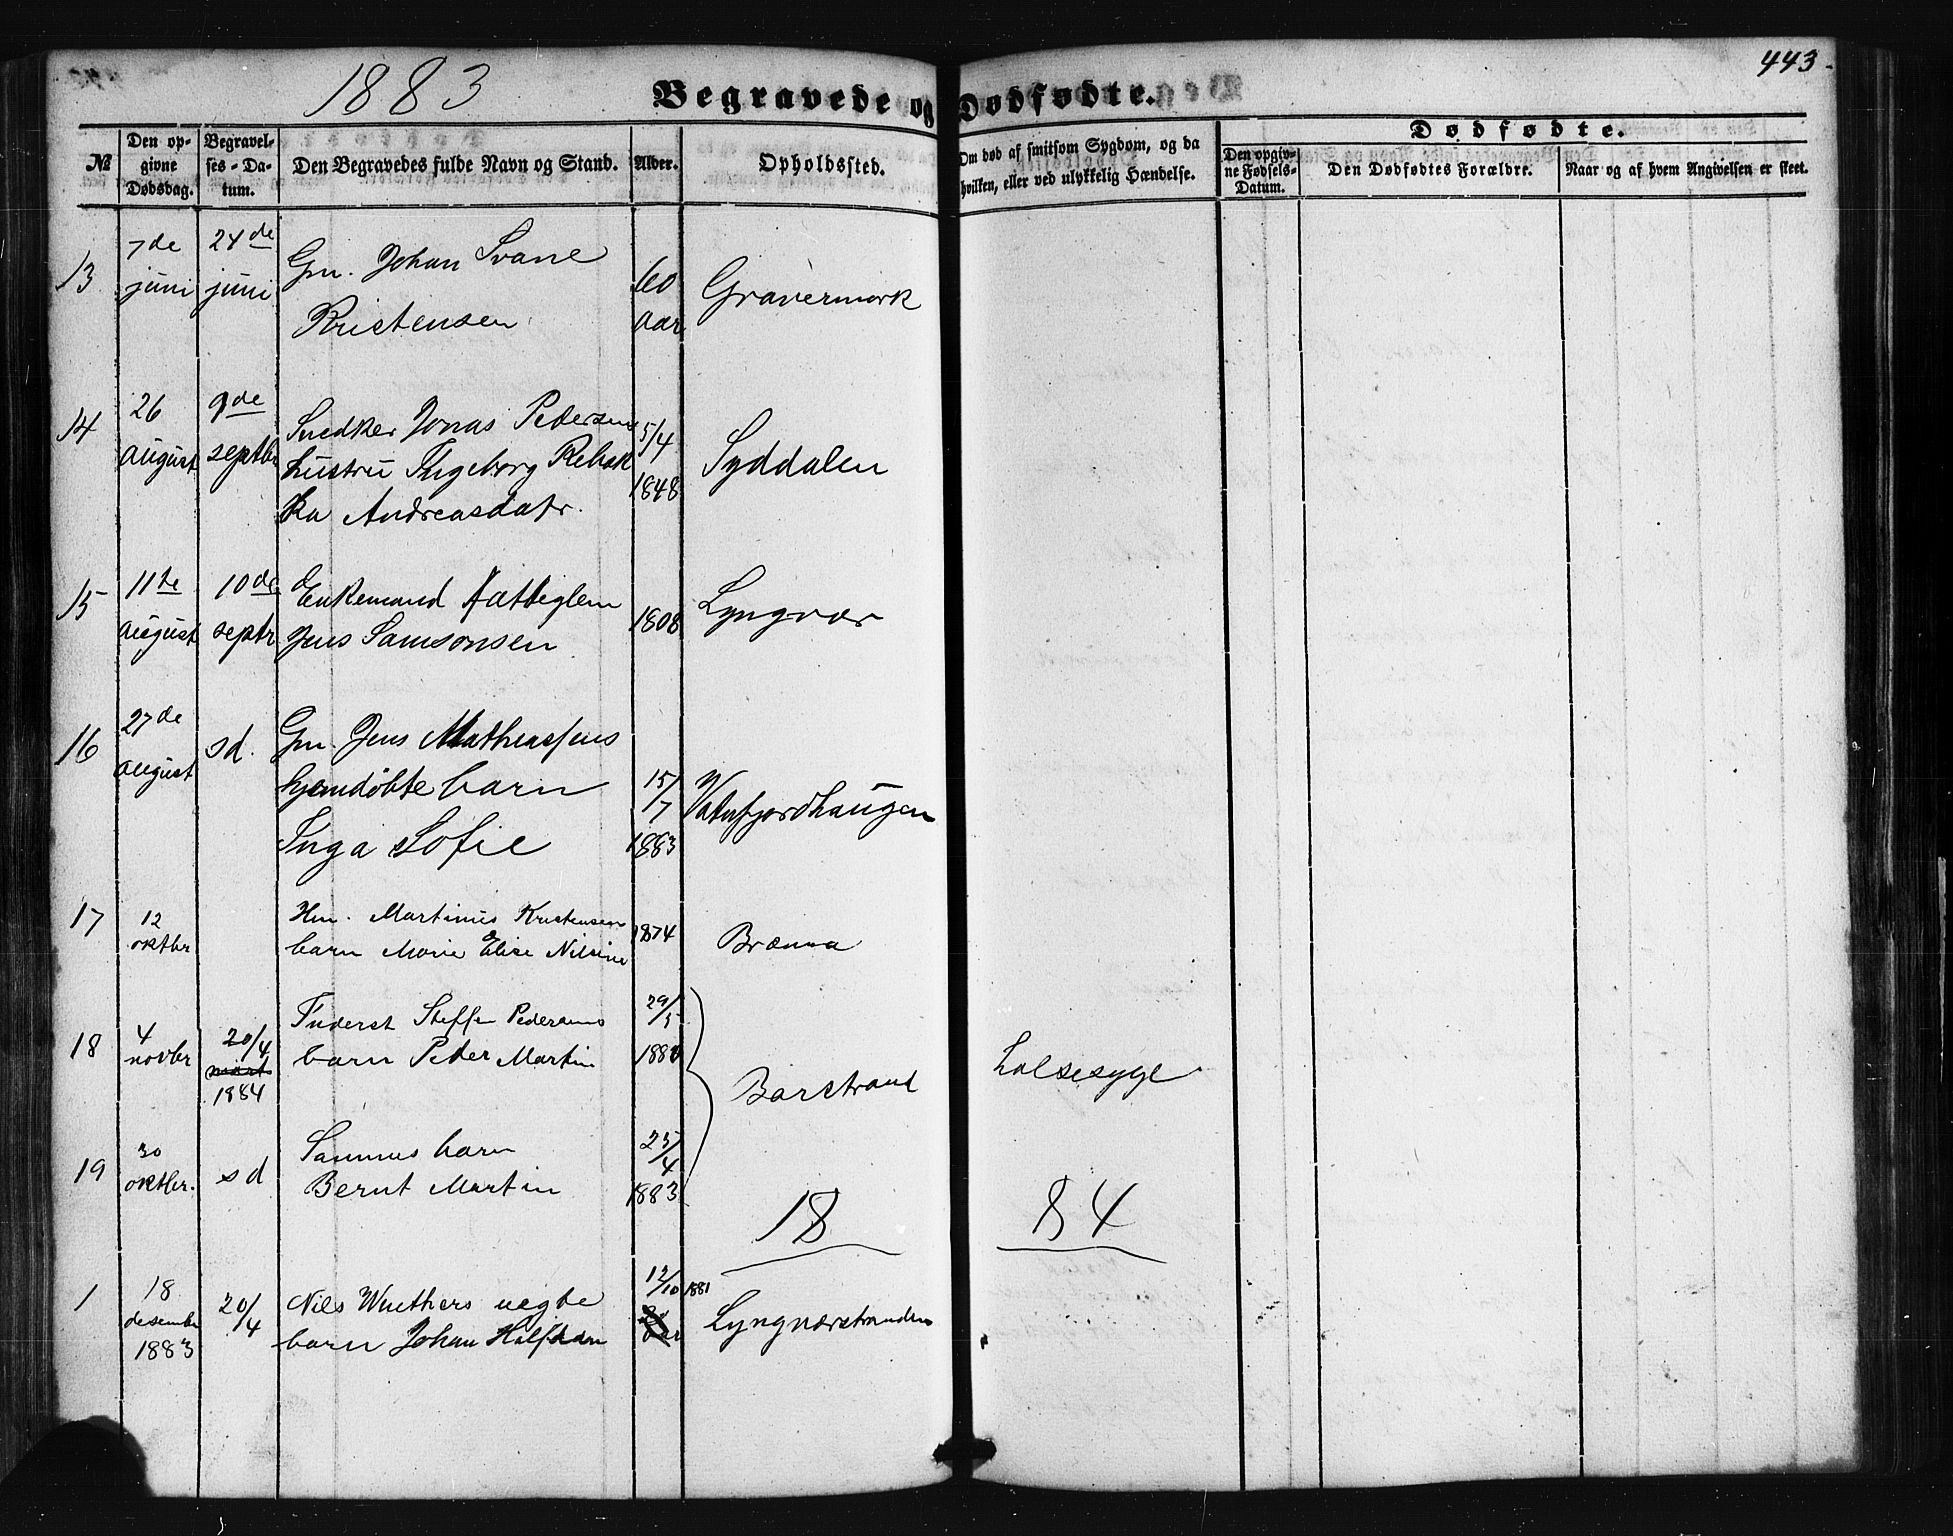 443.
1883
Begravede og Dødfødte.
№
Den opgivne Dødsdag.
Begravelses-Datum.
Den Begravedes fulde Navn og Stand.
Alder.
Opholdssted.
Om død af smitsom Sygdom, og da hvilken, eller ved ulykkelig Hændelse.
Dødfødte.
Den opgivne Fødsels-Datum.
Den Dødfødtes Forældre.
Naar og af hvem Angivelsen er skeet.
13
7de juni
24de juni
Gm. Johan Svane
Kristensen
60
aar
Gravermark
14
26 august
9de septbr
Snedker Jonas Pedersens
hustru Ingeborg Rebek
ka Andreasdatr.
5/4
1848
Syddalen
15
11te august
10de septr
Enkemand Fattiglem
Jens Samsonsen
1808
Lyngvær
16
27de august
sd.
Gm. Jens Mathiassens
hjemdøbte barn
Inga Sofie
15/7
1883
Vatnfjordhaugen
17
12 oktbr
Hm. Martinus Kristensen
barn Marie Elise Nilsine
1874
Brænna
18
4 novbr
20/4
1884
Inderst Steffen Pedersens
barn Peder Martin
29/5
Barstrand
Halsesyge
19
30 oktbr.
sd
Sammes barn
Bernt Martin
25/4
1883
18 84
1
18
desembr
1883
20/4
Nils Wuthers uegte
barn Johan Halfdan
12/10 1881
aar
Lyngværstranden